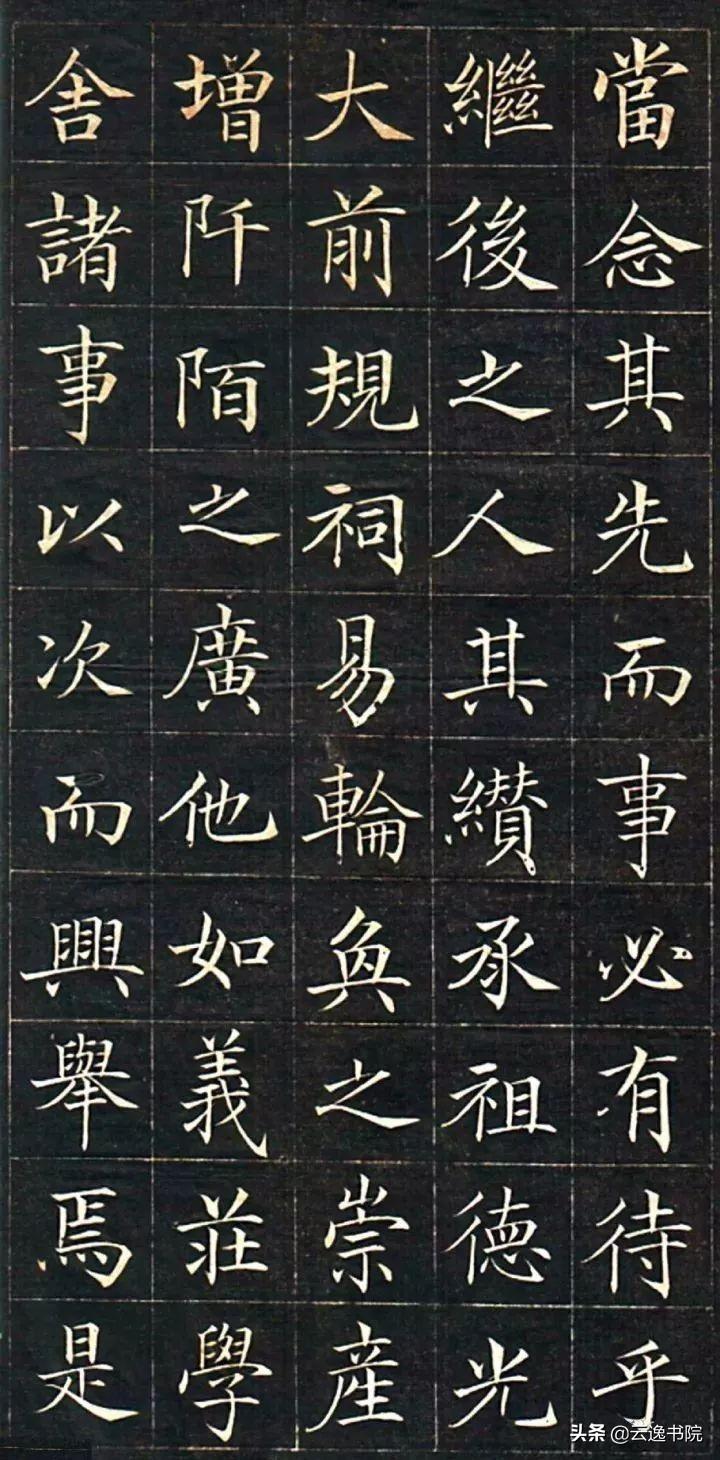 當念其先而事必有待乎
繼後之人其纘承祖德光
大前規祠易輪奐之崇産
增阡陌之廣他如義莊學
舍諸事以次而興舉焉是
头条 @云逸书院